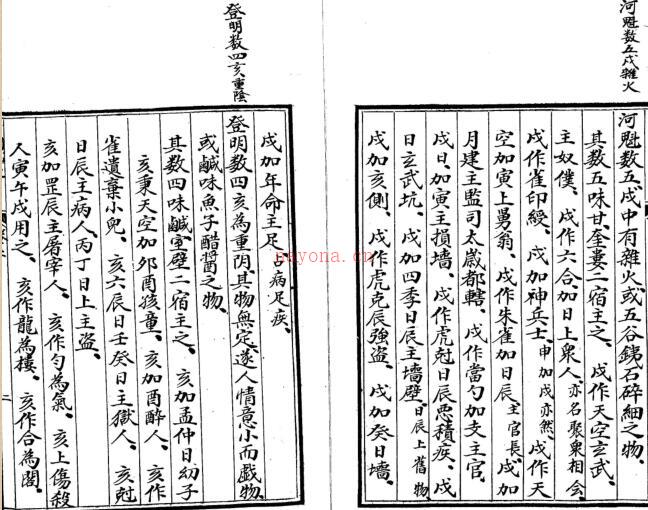 河魁数五戌雜火
河魁数五，戌中有雜火，或五谷鉄石碎細之物。
其数五味甘，奎婁二宿主之。 戌作天空玄武，
主奴僕。 戌作六合，加日上衆人。亦名聚衆相会。
戌作雀印綬。 戌加神兵士。申加戌亦然。 戌作天
空加寅上舅翁。 戌作朱雀加日辰，主官長。 戌加
月建主監司太歳都轄。 戌作當勾加支主官。
戌日加寅主損墙。 戌作虎尅日辰悪積疾。 戌
日玄武坑。 戌加四季日辰主墻壁。日辰上舊物。
戌加亥側。 戌作虎克辰強盗。 戌加癸日墙。
登明数四亥重陰
戌加年命主足。占病足疾。
登明数四，亥為重阴，其物無定，遂人情意小而戯物，
或鹹味魚子醋醤之物。
其数四味鹹，室壁二宿主之。 亥加孟仲日幼子
亥乗天空加夘酉孩童。 亥加酉醉人。 亥作
雀遺棄小兒。 亥六辰日壬癸日主獄人。 亥尅
日辰主病人，丙丁日上主盗。
亥加罡辰主屠宰人。 亥作勾為氣。 亥上傷殺
人寅午戌用之。 亥作龍為楼。 亥作合為閣。
三
nayona.cn